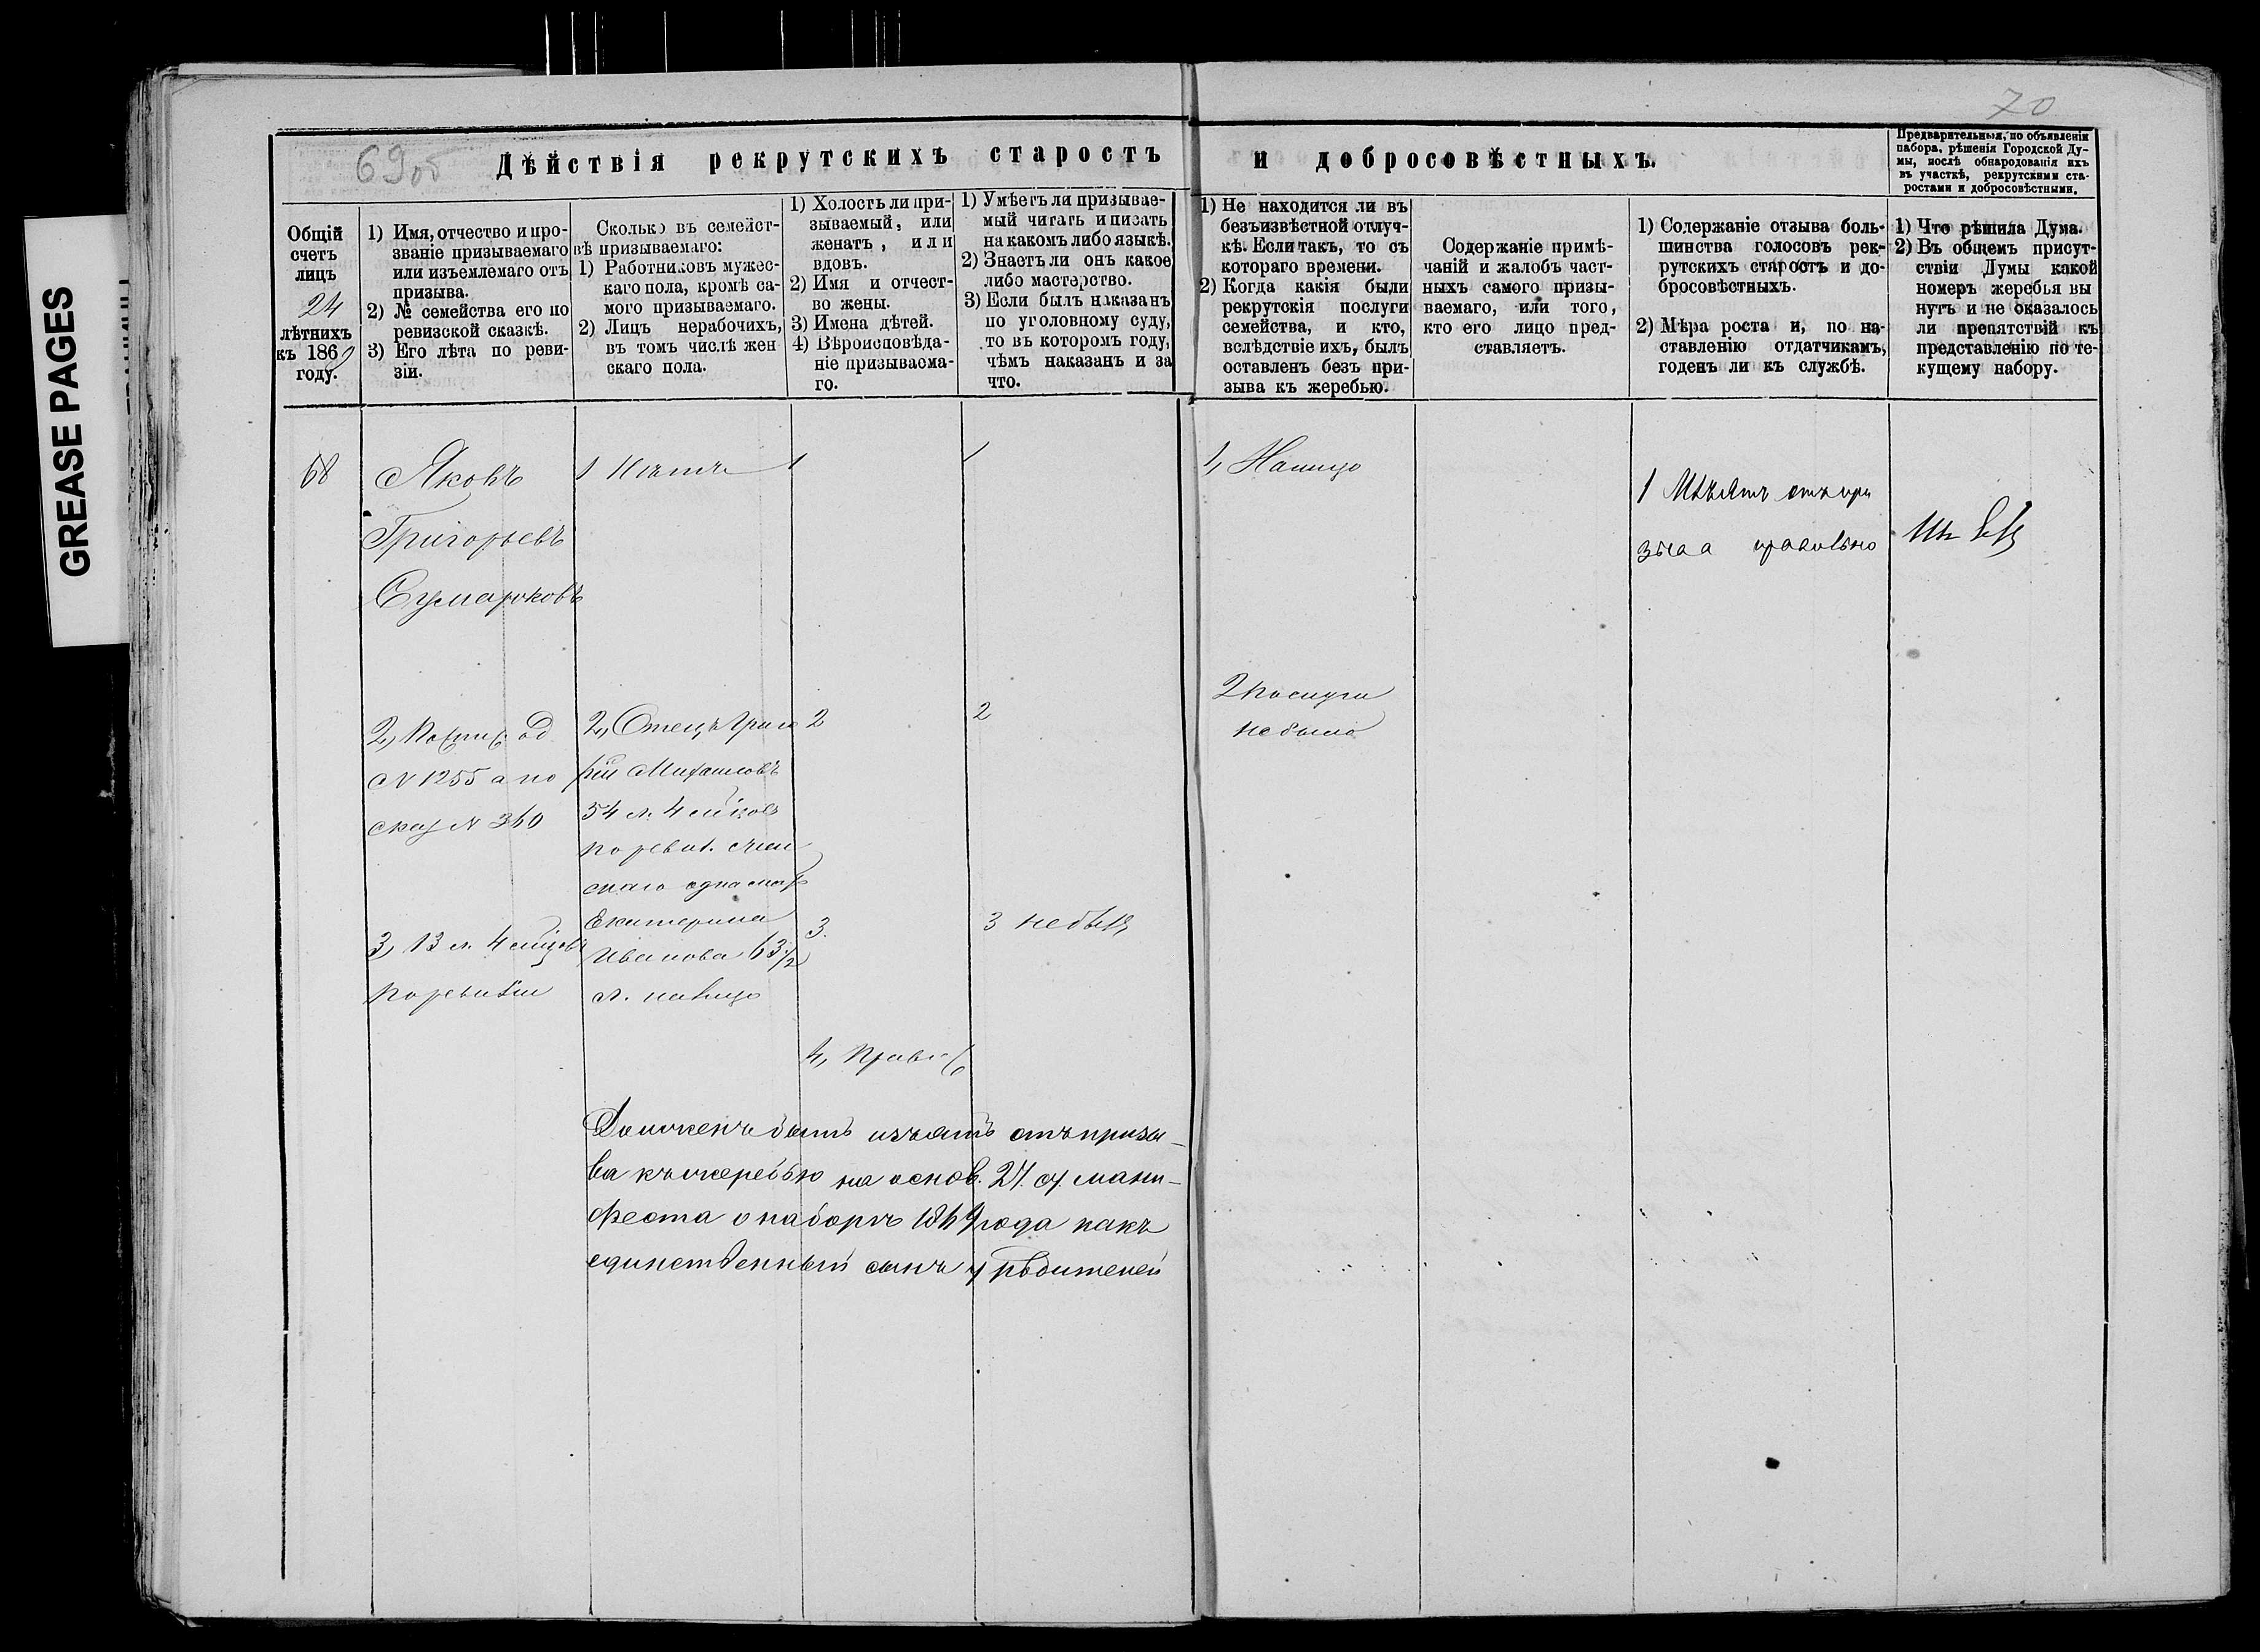 GREASE PAGES
69об
70
Дѣйствія рекрутскихъ старостъ
и добросовѣстныхъ.
Предварительныя, по объявленіи
набора, рѣшенія Городской Ду-
мы, послѣ обнародованія ихъ
въ участкѣ, рекрутскими ста-
ростами и добросовѣстными.
Общій
счетъ
лицъ
24
лѣтнихъ
къ 1869
году.
1) Имя, отчество и про-
званіе призываемаго
или изъемлемаго отъ
призыва.
2) № семейства его по
ревизской сказкѣ.
3) Его лѣта по реви-
зіи.
Сколько въ семейст-
вѣ призываемаго:
1) Работниковъ мужес-
каго пола, кромѣ са-
мого призываемаго.
2) Лицъ нерабочихъ,
въ томъ числѣ жен
скаго пола.
1) Холостъ ли при-
зываемый, или
женатъ, или
вдовъ.
2) Имя и отчест-
во жены.
3) Имена дѣтей.
4) Вѣроисповѣда-
ніе призываема-
го.
1) Умѣетъ ли призывае-
мый читать и писать
на какомъ либо языкѣ.
2) Знаетъ ли онъ какое
либо мастерство.
3) Если былъ наказанъ
по уголовному суду,
то въ которомъ году,
чѣмъ наказанъ и за
что.
1) Не находится ли въ
безъизвѣстной отлуч-
кѣ. Если такъ, то съ
котораго времени.
2) Когда какія были
рекрутскія послуги
семейства, и кто,
вслѣдствіе ихъ, былъ
оставленъ безъ при-
зыва къ жеребью.
Содержаніе примѣ-
чаній и жалобъ част-
ныхъ самого призы-
ваемаго, или того,
кто его лицо пред-
ставляетъ.
1) Содержаніе отзыва боль-
шинства голосовъ рек-
рутскихъ старостъ и до-
бросовѣстныхъ.
2) Мѣра роста и, по на-
ставленію отдатчикамъ,
годенъ ли къ службѣ.
1) Что рѣшила Дума.
2) Въ общемъ присут-
ствіи Думы какой
номеръ жеребья вы
нутъ и не оказалось
ли препятствій къ
представленію по те-
кущему набору.
68
Яковъ
Григорьевъ
Сумароковъ
2)
N 1255 а по
сказ N 360
3) 13 л. 4 міцов
по ревизіи
1 Нѣтъ
2) Отецъ Григо
рій Михайловъ
54 л. 4 міцов
по ревиз. жен
скаго одна мать
Екатерина
Иванова 63 1/2
л. налицо
1
2
3.
4, Правос
1
2
3 не былъ
Долженъ быть изъятъ отъ призы-
ва къ жеребью на основ. 27. ст. мани-
феста о наборѣ 1869 года какъ
единственный сынъ у родителей
1, Налицо
2 послуги
не было
1 Изъятъ отъ при
зыва правильно